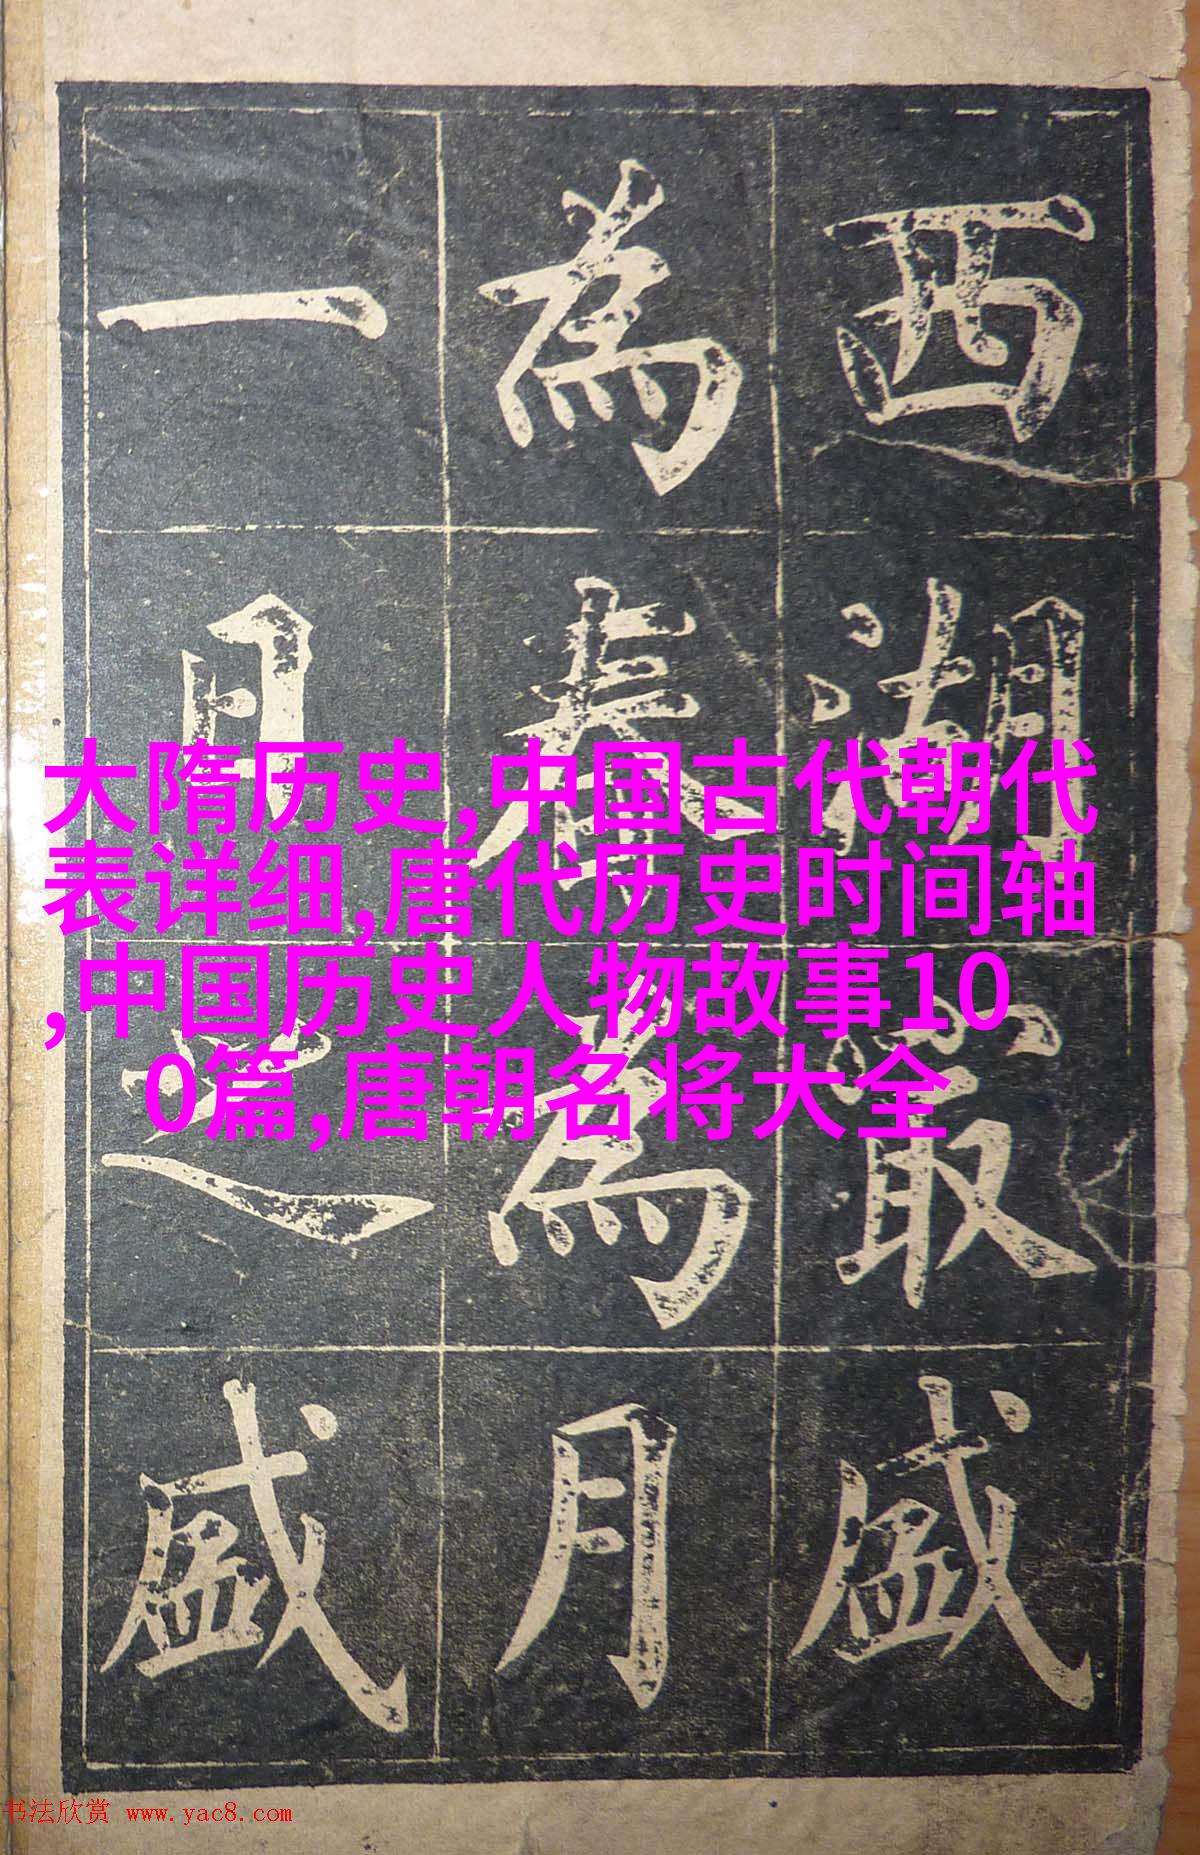 西湖最盛
為春為月
一日之盛
大隋历史,中国古代朝代
表详细,唐代历史时间轴
,中国历史人物故事10
0篇,唐朝名将大全
书法欣赏 www.yac8.com